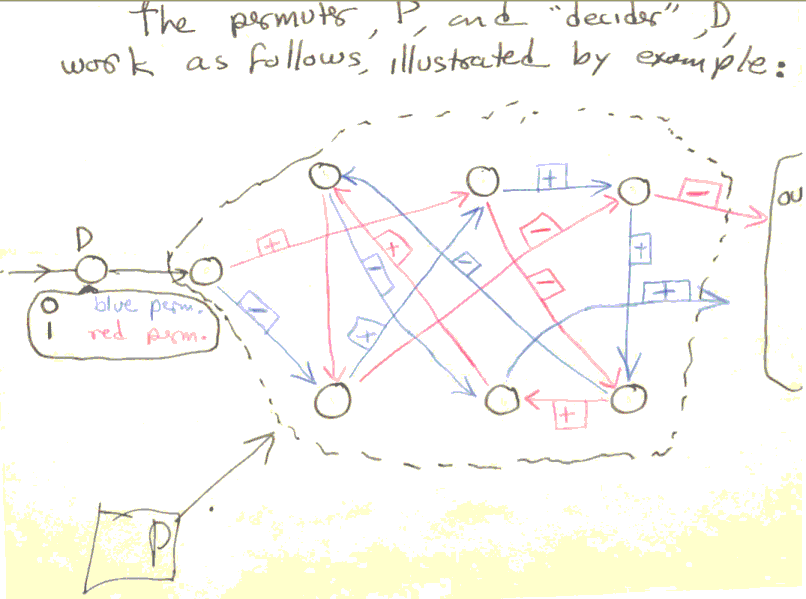 The permuter, P, and "decider", D,
work as follows, illustrated by example:
D
0 blue perm.
1 red perm.
+
-
+
-
+
-
+
-
-
+
-
+
+
P
ou